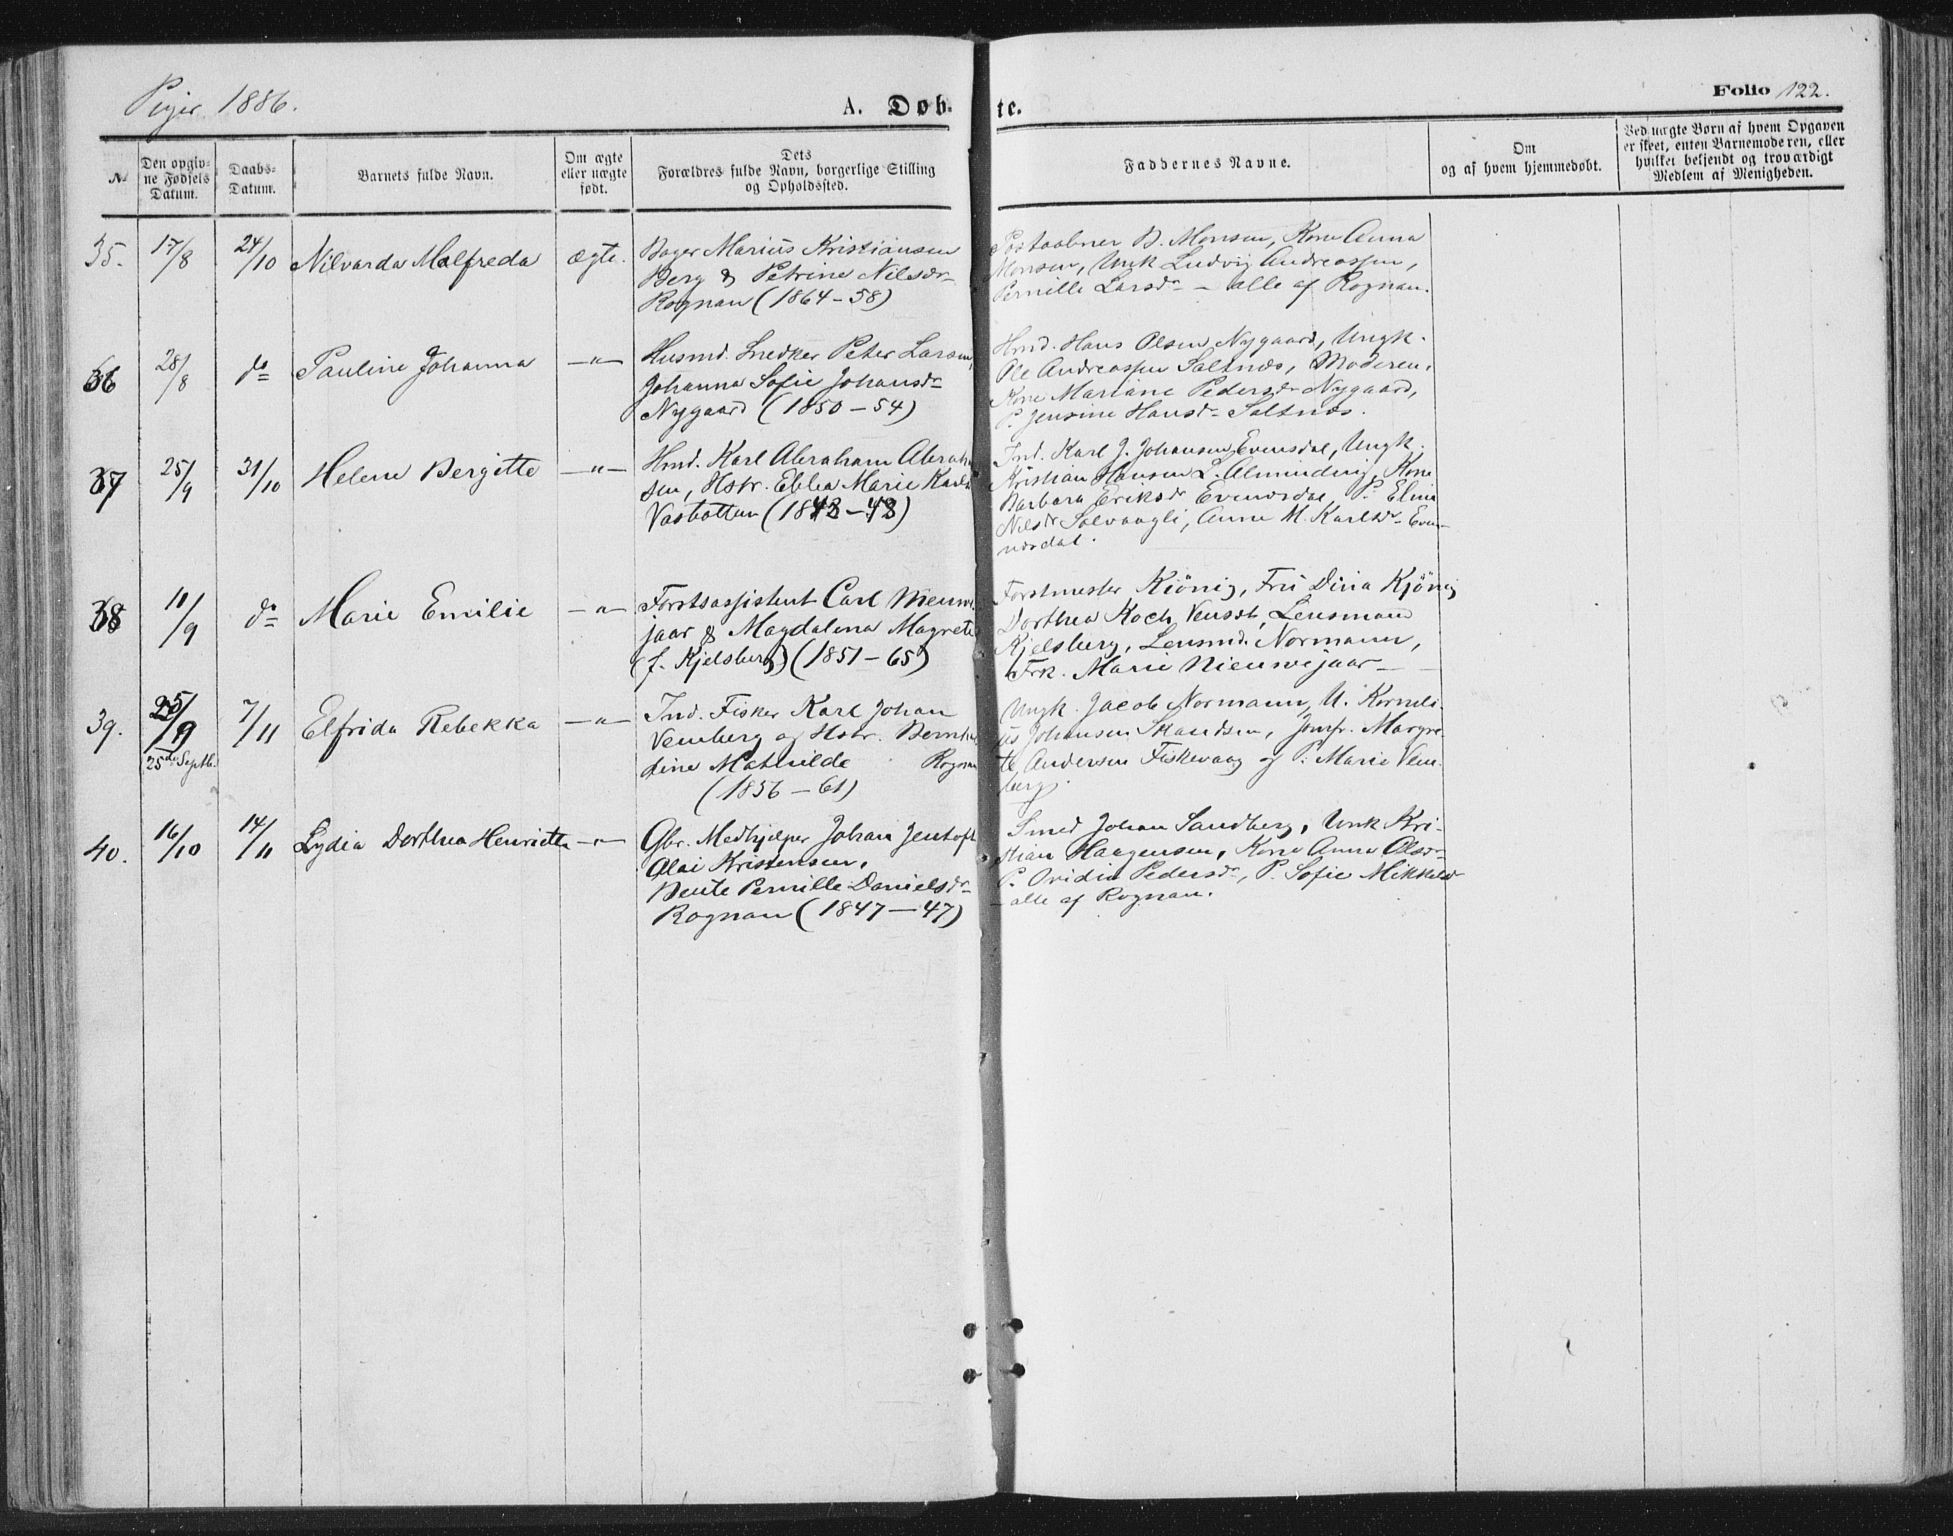 Piger 1886.
A. Døb-
te.
Folio 122.
№
Den opgiv-
ne Fødsels
Datum.
Daabs-
Datum.
Barnets fulde Navn.
Om ægte
eller uægte
født.
Dets
Forældres fulde Navn, borgerlige Stilling
og Opholdssted.
Faddernes Navne.
Om
og af hvem hjemmedøbt.
Ved uægte Børn af hvem Opgaven
er skeet, enten Barnemoderen, eller
hvilket bekjendt og troværdigt
Medlem af Menigheden.
35.
17/8
24/10
Nilvarda Malfreda
ægte.
Bager Marius Kristiansen
Berg & Petrine Nilsdr
Rognan (1864-58)
Postaabner B. Monsen, Kone Anna
Monsen, Unk Ludvig Andreassen,
Pernille Larsdr - alle af Rognan.
36
28/8
do
Pauline Johanna
-"-
Husmd. Snedker Peter Larsen,
Johanna Sofie Johansdr
Nygaard (1850-54)
Hmd. Hans Olsen Nygaard, Ungk.
Ole Andreassen Saltnes, Moderen,
Kone Mariane Pedersdr Nygaard,
P. Jensine Hansdr Saltnes.
37
25/9
31/10
Helene Bergitte
-"-
Hmd. Karl Abraham Abraham
sen, Hstr. Ebba Marie Karls
Vasbotten (1842-48)
Ind. Karl J. Johansen Evensdal, Ungk.
Kristian Hansen L. Almindvig, Kone
Barbara Eriksdr Evensdal, P. Eline
Nilsdr Solvaagli, Anne M. Karlsdr Eve-
nesdal.
38
11/9
do
Marie Emilie
-"-
Forstassistent Carl Nieuwe
jaar & Magdalena Magrete
(f. Kjelsberg) (1851-65)
Forstmester Kiönig, Fru Dina Kjönig
Dorthea Koch Lensmand
Kjelsberg, Lensmd. Normann,
Frk. Marie Nieuwejaar
39.
25/9
25de Septb.
7/11
Elfrida Rebekka
-"-
Ind. Fisker Karl Johan
Venberg og Hstr. Bernhar
dine Mathilde Rognan
(1856-61)
Ungk. Jacob Normann, U. Korneli-
us Johansen Skandsen, Jomfr. Margre-
te Andersen Fiskvaag og P. Marie Ven-
berg.
40.
16/10
14/11
Lydia Dorthea Henriette
-"-
Gbr. Medhjælper Johan Jentoft
Olai Kristensen,
Bente Pernille Danielsdr
Rognan (1847-47)
Smed Johan Sandberg, Unk Kri-
stian Haagensen, Kone Anna Olsdr
P. Ovidia Pedersdr, P. Sofie Mikkelsdr
- alle af Rognan.